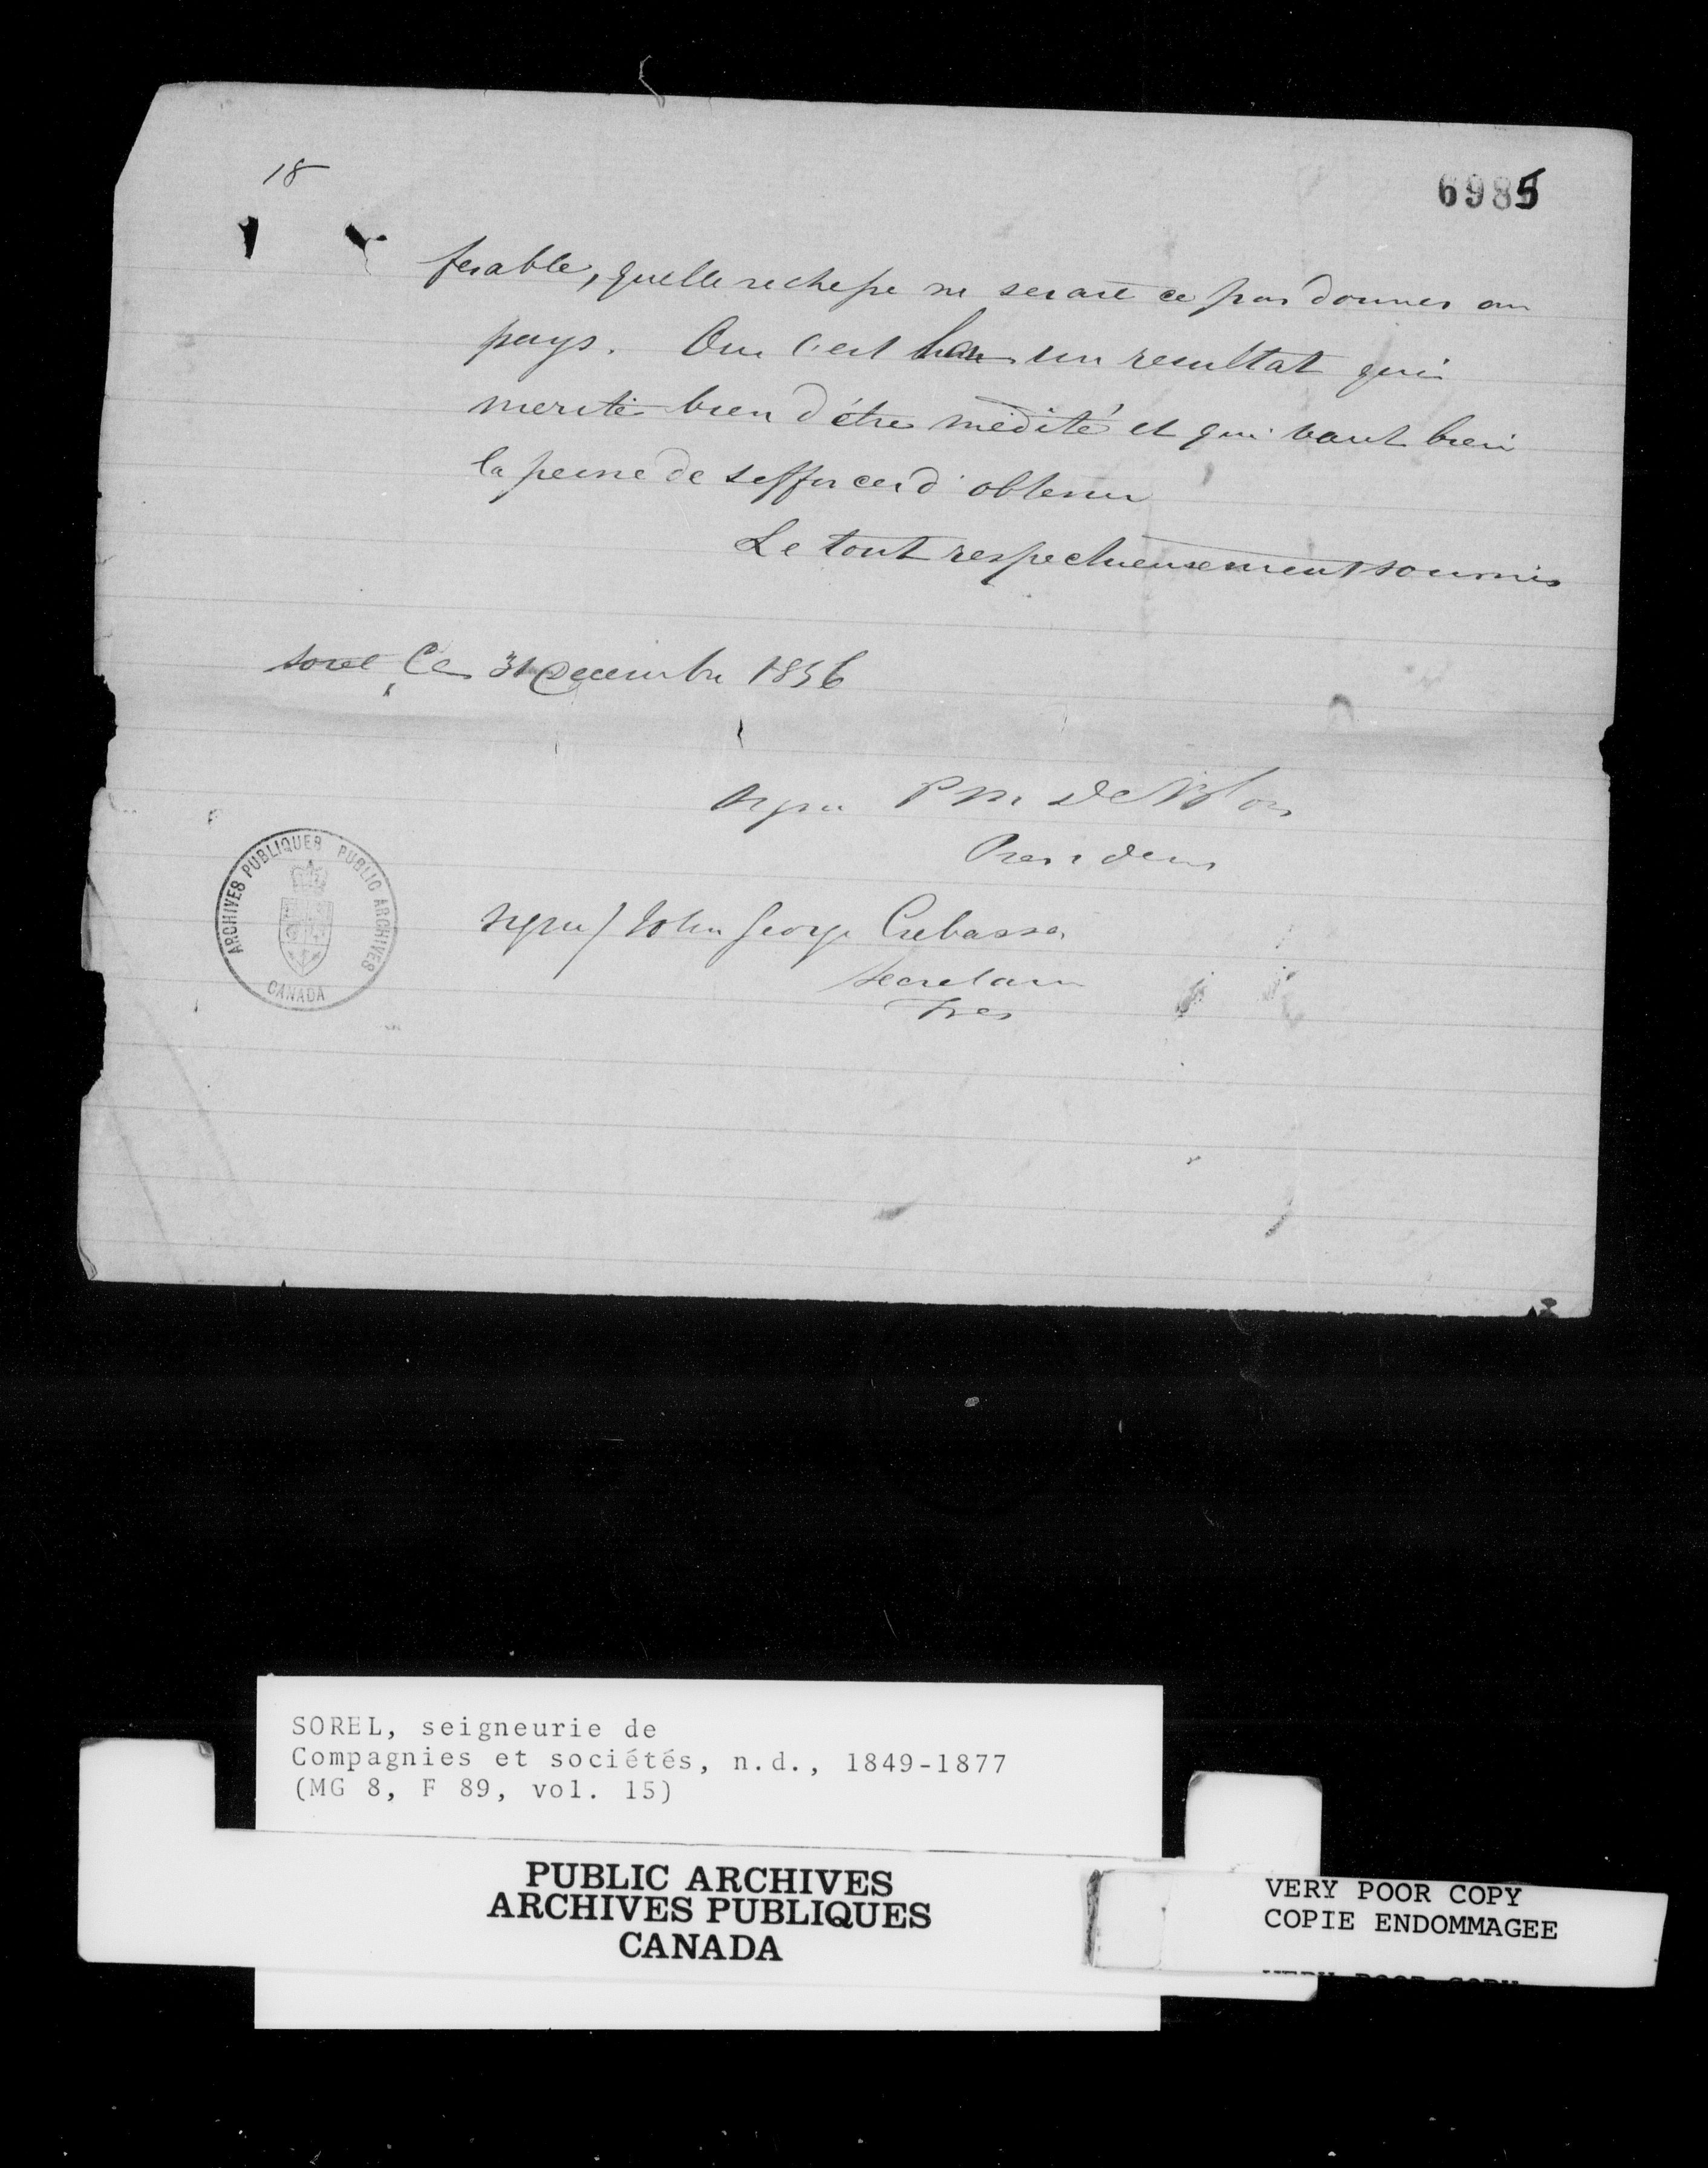 18
6985
ferable, quelle richesse ne serait ce pas donner au
pays. Oui c'est là un resultat qui
merite bien d'être médité et qui vaut bien
la peine de sefforcer d'obtenir
Le tout respectueusement soumis
Sorel Ce 31 Decembre 1856
signé P M
President
signé / John George Crebassa
Secretaire
Tres
ARCHIVES PUBLIQUES PUBLIC ARCHIVES
CANADA
SOREL, seigneurie de
Compagnies et sociétés, n.d., 1849-1877
(MG 8, F 89, vol. 15)
PUBLIC ARCHIVES
ARCHIVES PUBLIQUES
CANADA
VERY POOR COPY
COPIE ENDOMMAGEE
VERY POOR COPY